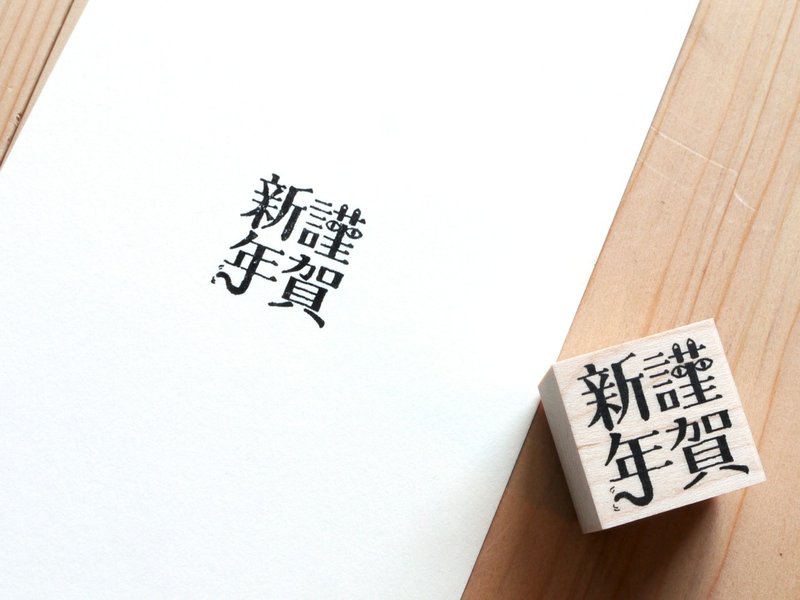 謹賀
新年
謹賀
新年